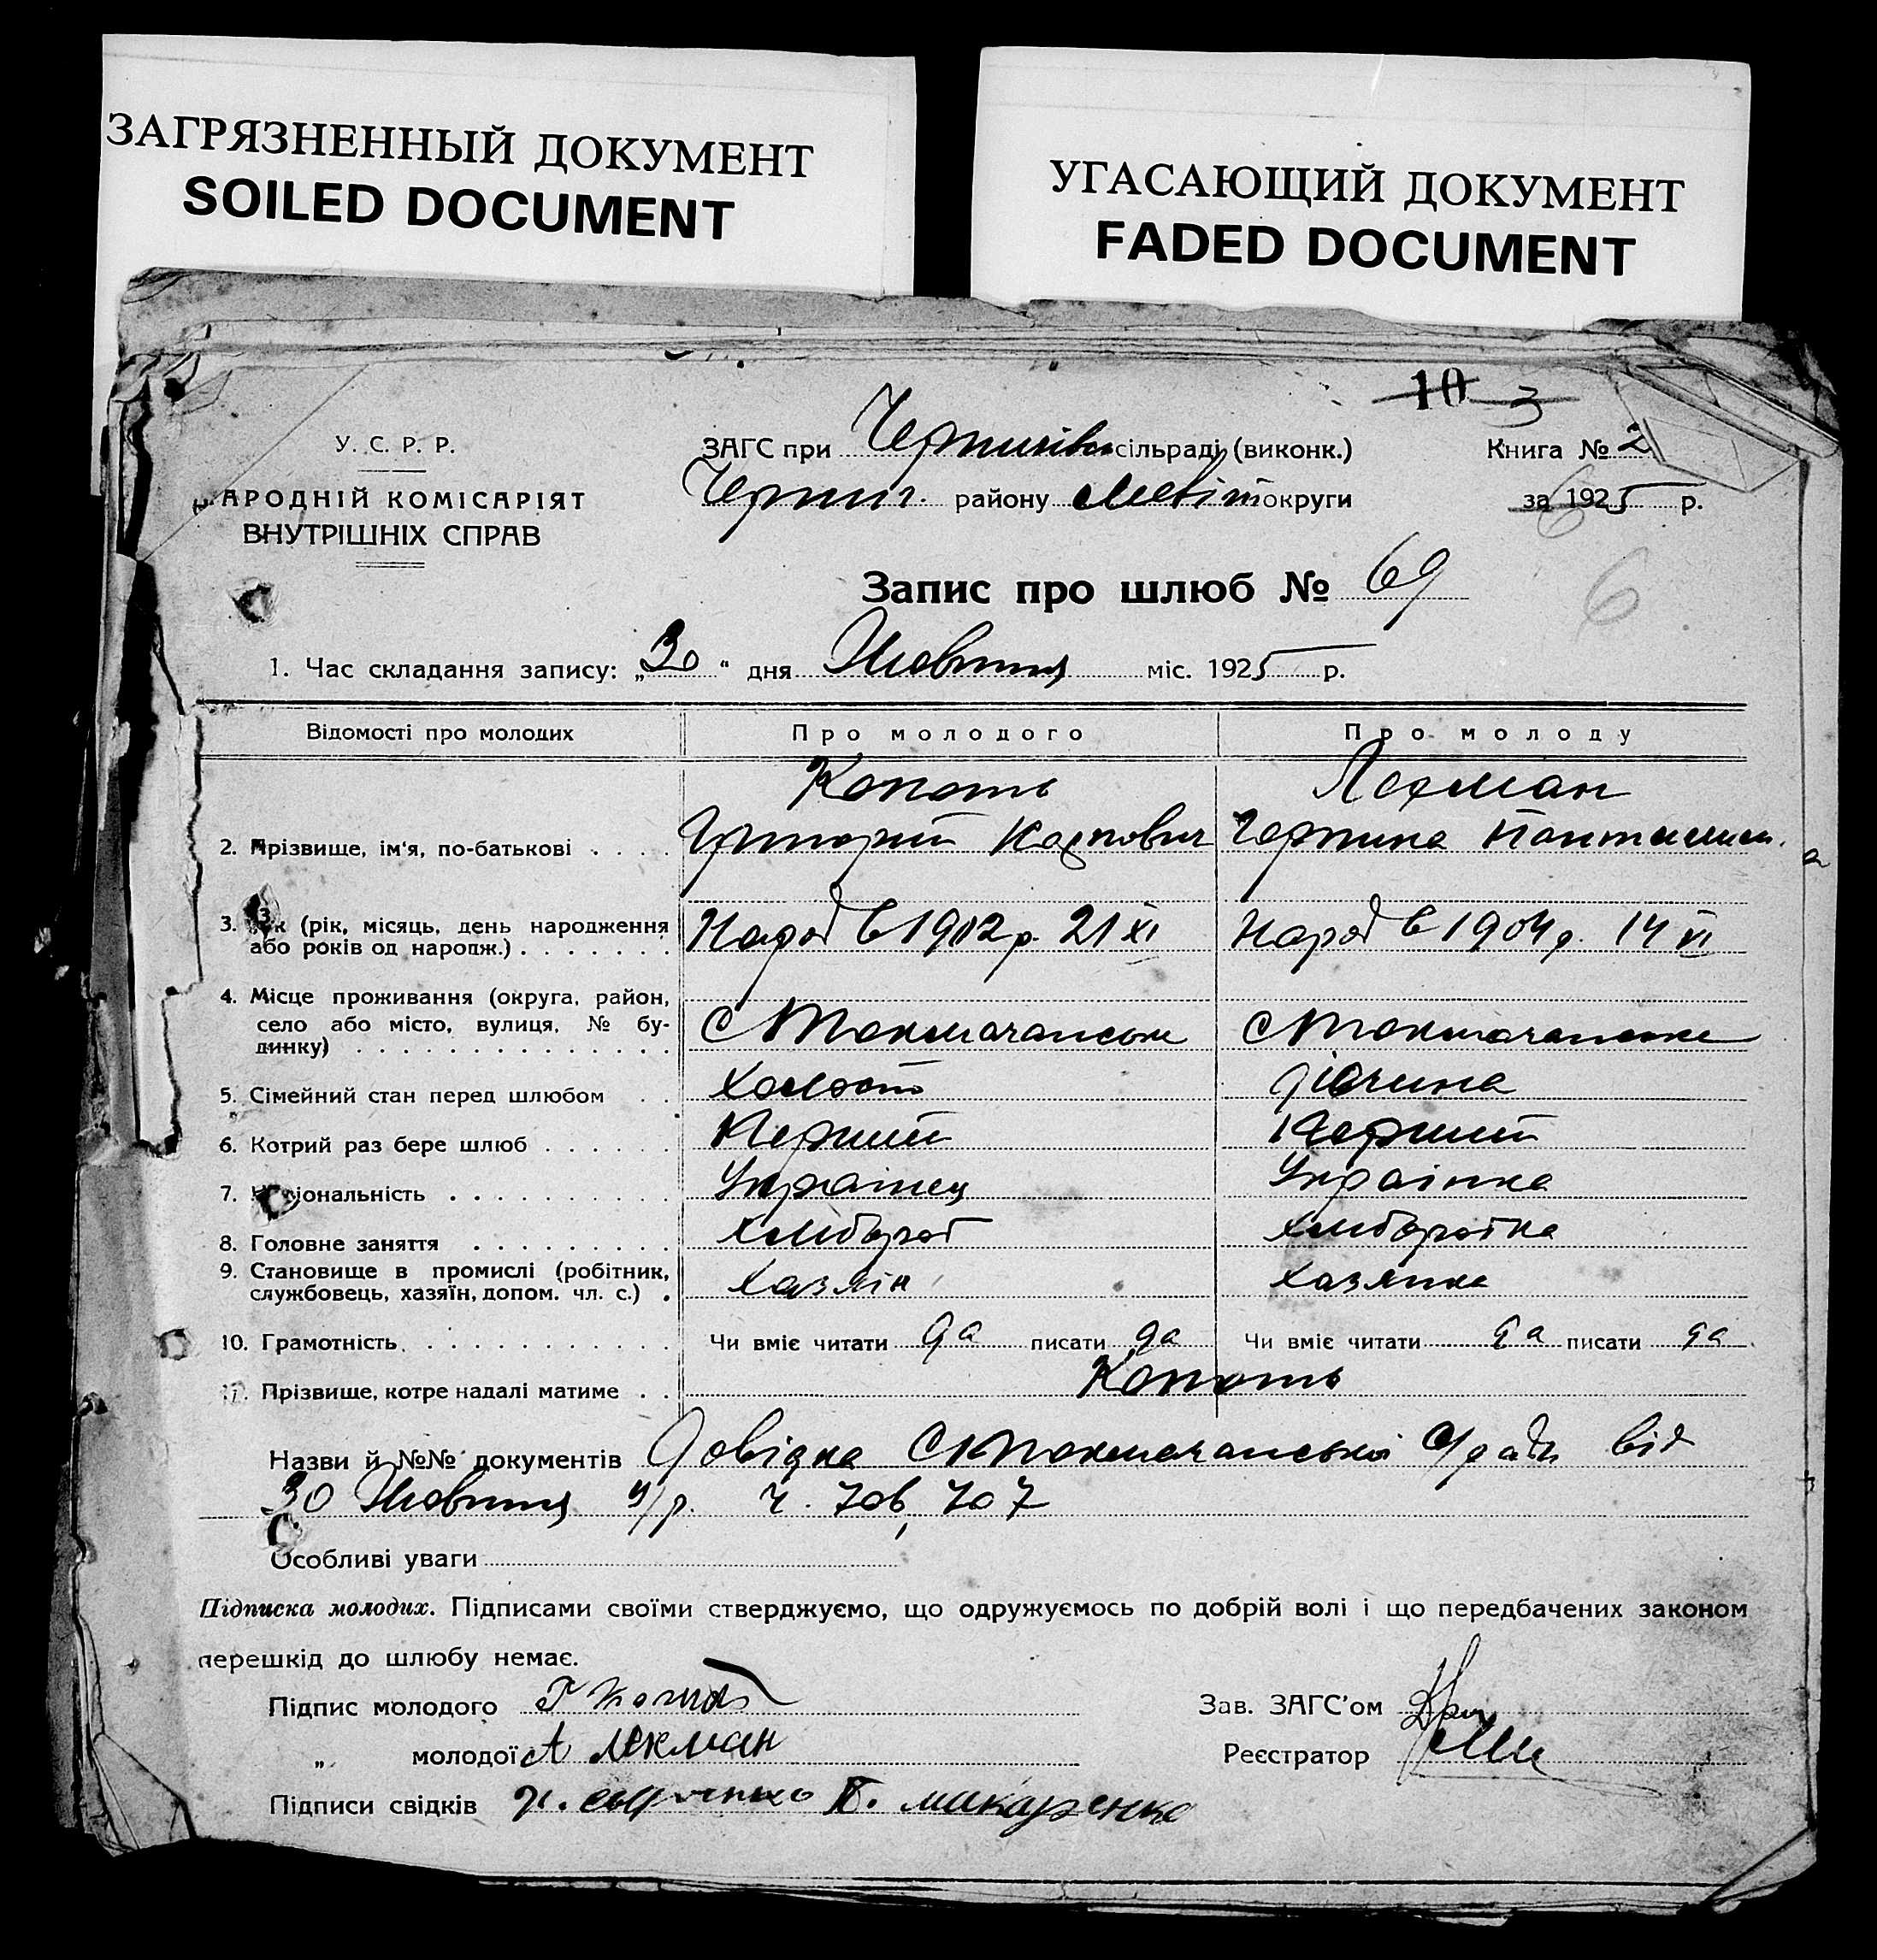 ЗАГРЯЗНЕННЫЙ ДОКУМЕНТ
SOILED DOCUMENT
УГАСАЮЩИЙ ДОКУМЕНТ
FADED DOCUMENT
10 3
У. С. Р. Р.
НАРОДНІЙ КОМІСАРІЯТ
ВНУТРІШНІХ СПРАВ
ЗАГС при Чернигівс сільраді (виконк.)
Черниг. району Меліт округи
Книга № 2
за 1925 р.
6
Запис про шлюб № 69
6
1. Час складання запису: „30“ дня Жовтня міс. 1925 р.
Відомості про молодих Про молодого Про молоду
Копоть Лекман
2. Прізвище, ім'я, по-батькові . . . . Григорій Карпович
3. Вік (рік, місяць, день народження
або років од народж.) . . . . . . . Народ в 1902 р. 21 XI Народ в 1904 р. 14 VI
4. Місце проживання (округа, район,
село або місто, вулиця, № бу-
динку) . . . . . . . . . . . . . . С Токмачанськ С Токмачанське
5. Сімейний стан перед шлюбом . . холост дівчина
6. Котрий раз бере шлюб . . . . . . Перший Перший
7. Національність . . . . . . . . . . Українец Українка
8. Головне заняття . . . . . . . . . хлібороб хліборобка
9. Становище в промислі (робітник,
службовець, хазяїн, допом. чл. с.) . хазяін хазяика
10. Грамотність. . . . . . . . . . . . Чи вміє читати да писати да Чи вміє читати да писати да
11. Прізвище, котре надалі матиме . . Копоть
Назви й №№ документів Довідка С Токмачанської с/ради від
30 Жовтня ц/р. ч. 706, 707
Особливі уваги
Підписка молодих. Підписами своїми стверджуємо, що одружуємось по добрій волі і що передбачених законом
перешкід до шлюбу немає.
Підпис молодого Г Копоть
Зав. ЗАГС'ом
„ молодої А Лекман
Реєстратор
Підписи свідків П. макаренко